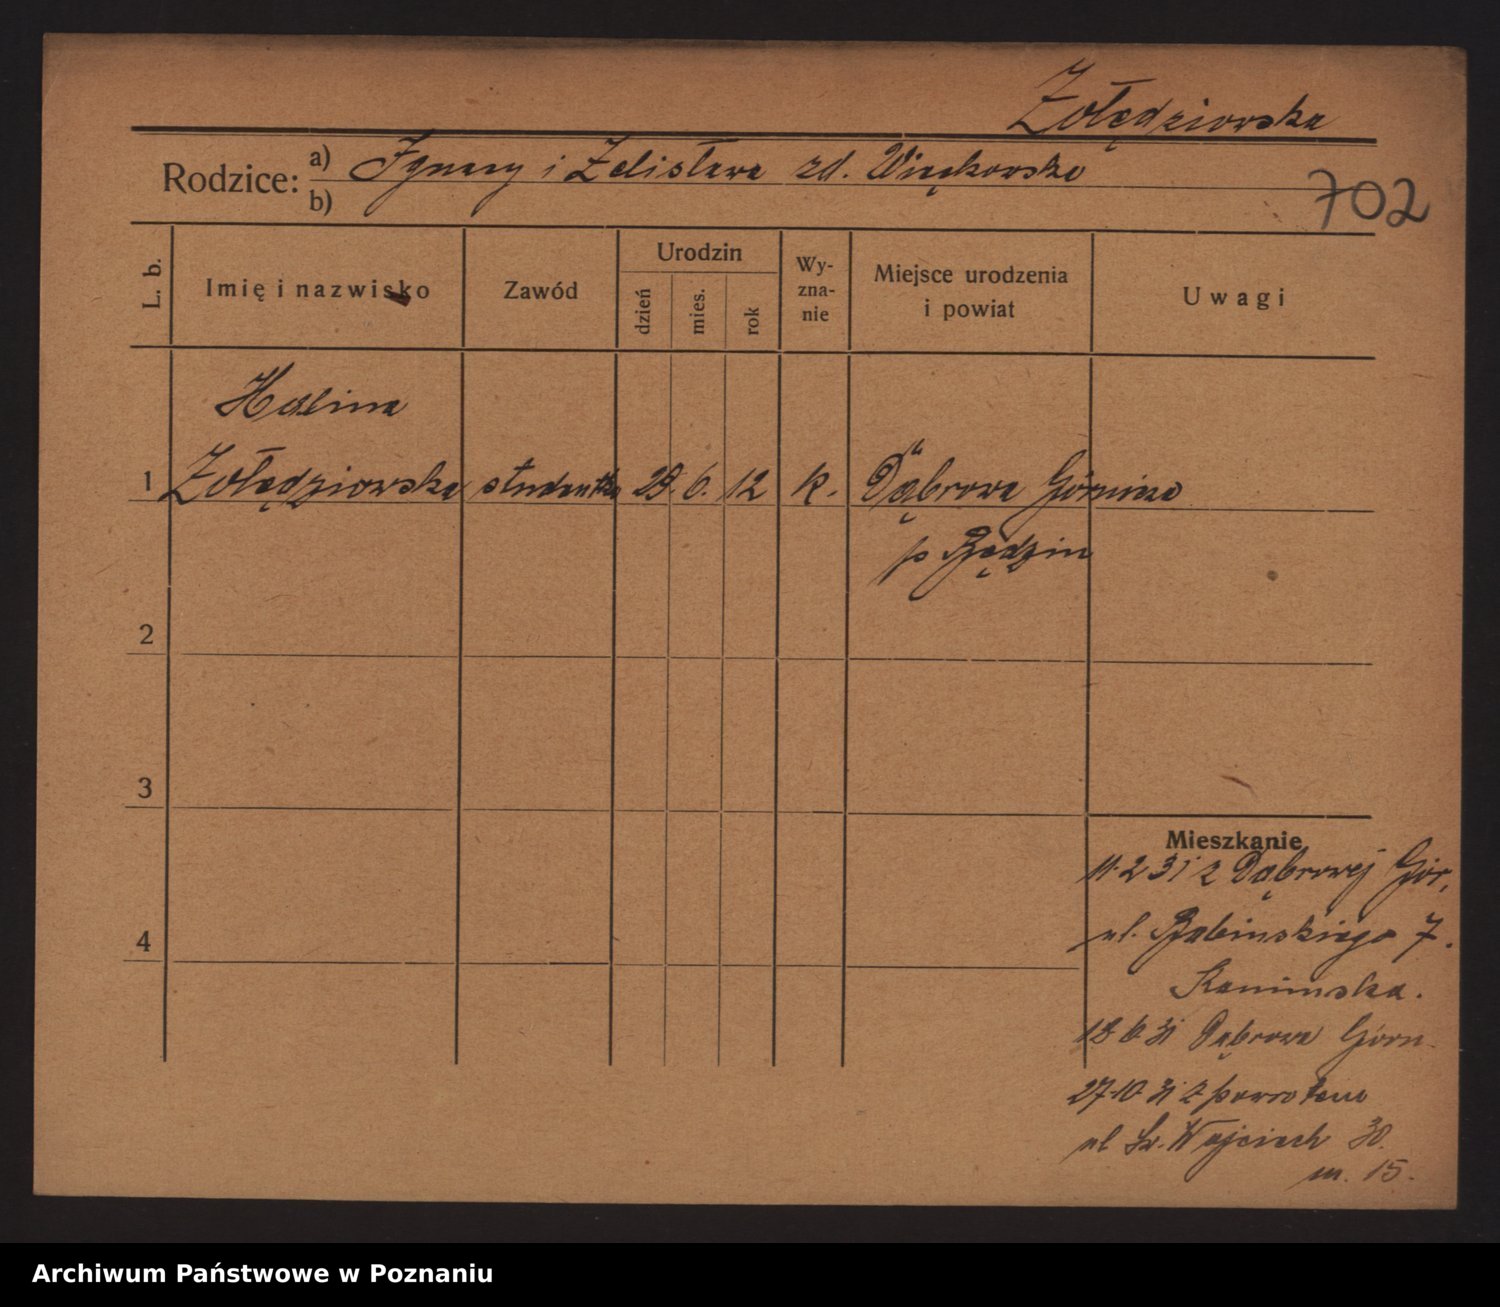 Żołędziowska
Rodzice: a) Ignacy i Żelisława zd. Więckowska
b)
702
L. b. Imię i nazwisko Zawód Urodzin dzień mies. rok Wy-zna-nie Miejsce urodzenia i powiat Uwagi
Halina
1 Żołędziowska studentka 29. 6. 12 k. Dąbrowa Górnicza
p Będzin
2
3
4
Mieszkanie
11.2 31 z Dąbrowej Gór,
ul. Babińskiego 7.
Kamińska.
18 6 31 Dąbrowa Górn.
27-10 31 z powrotem
ul Św. Wojciech 30.
m. 15.
Archiwum Państwowe w Poznaniu